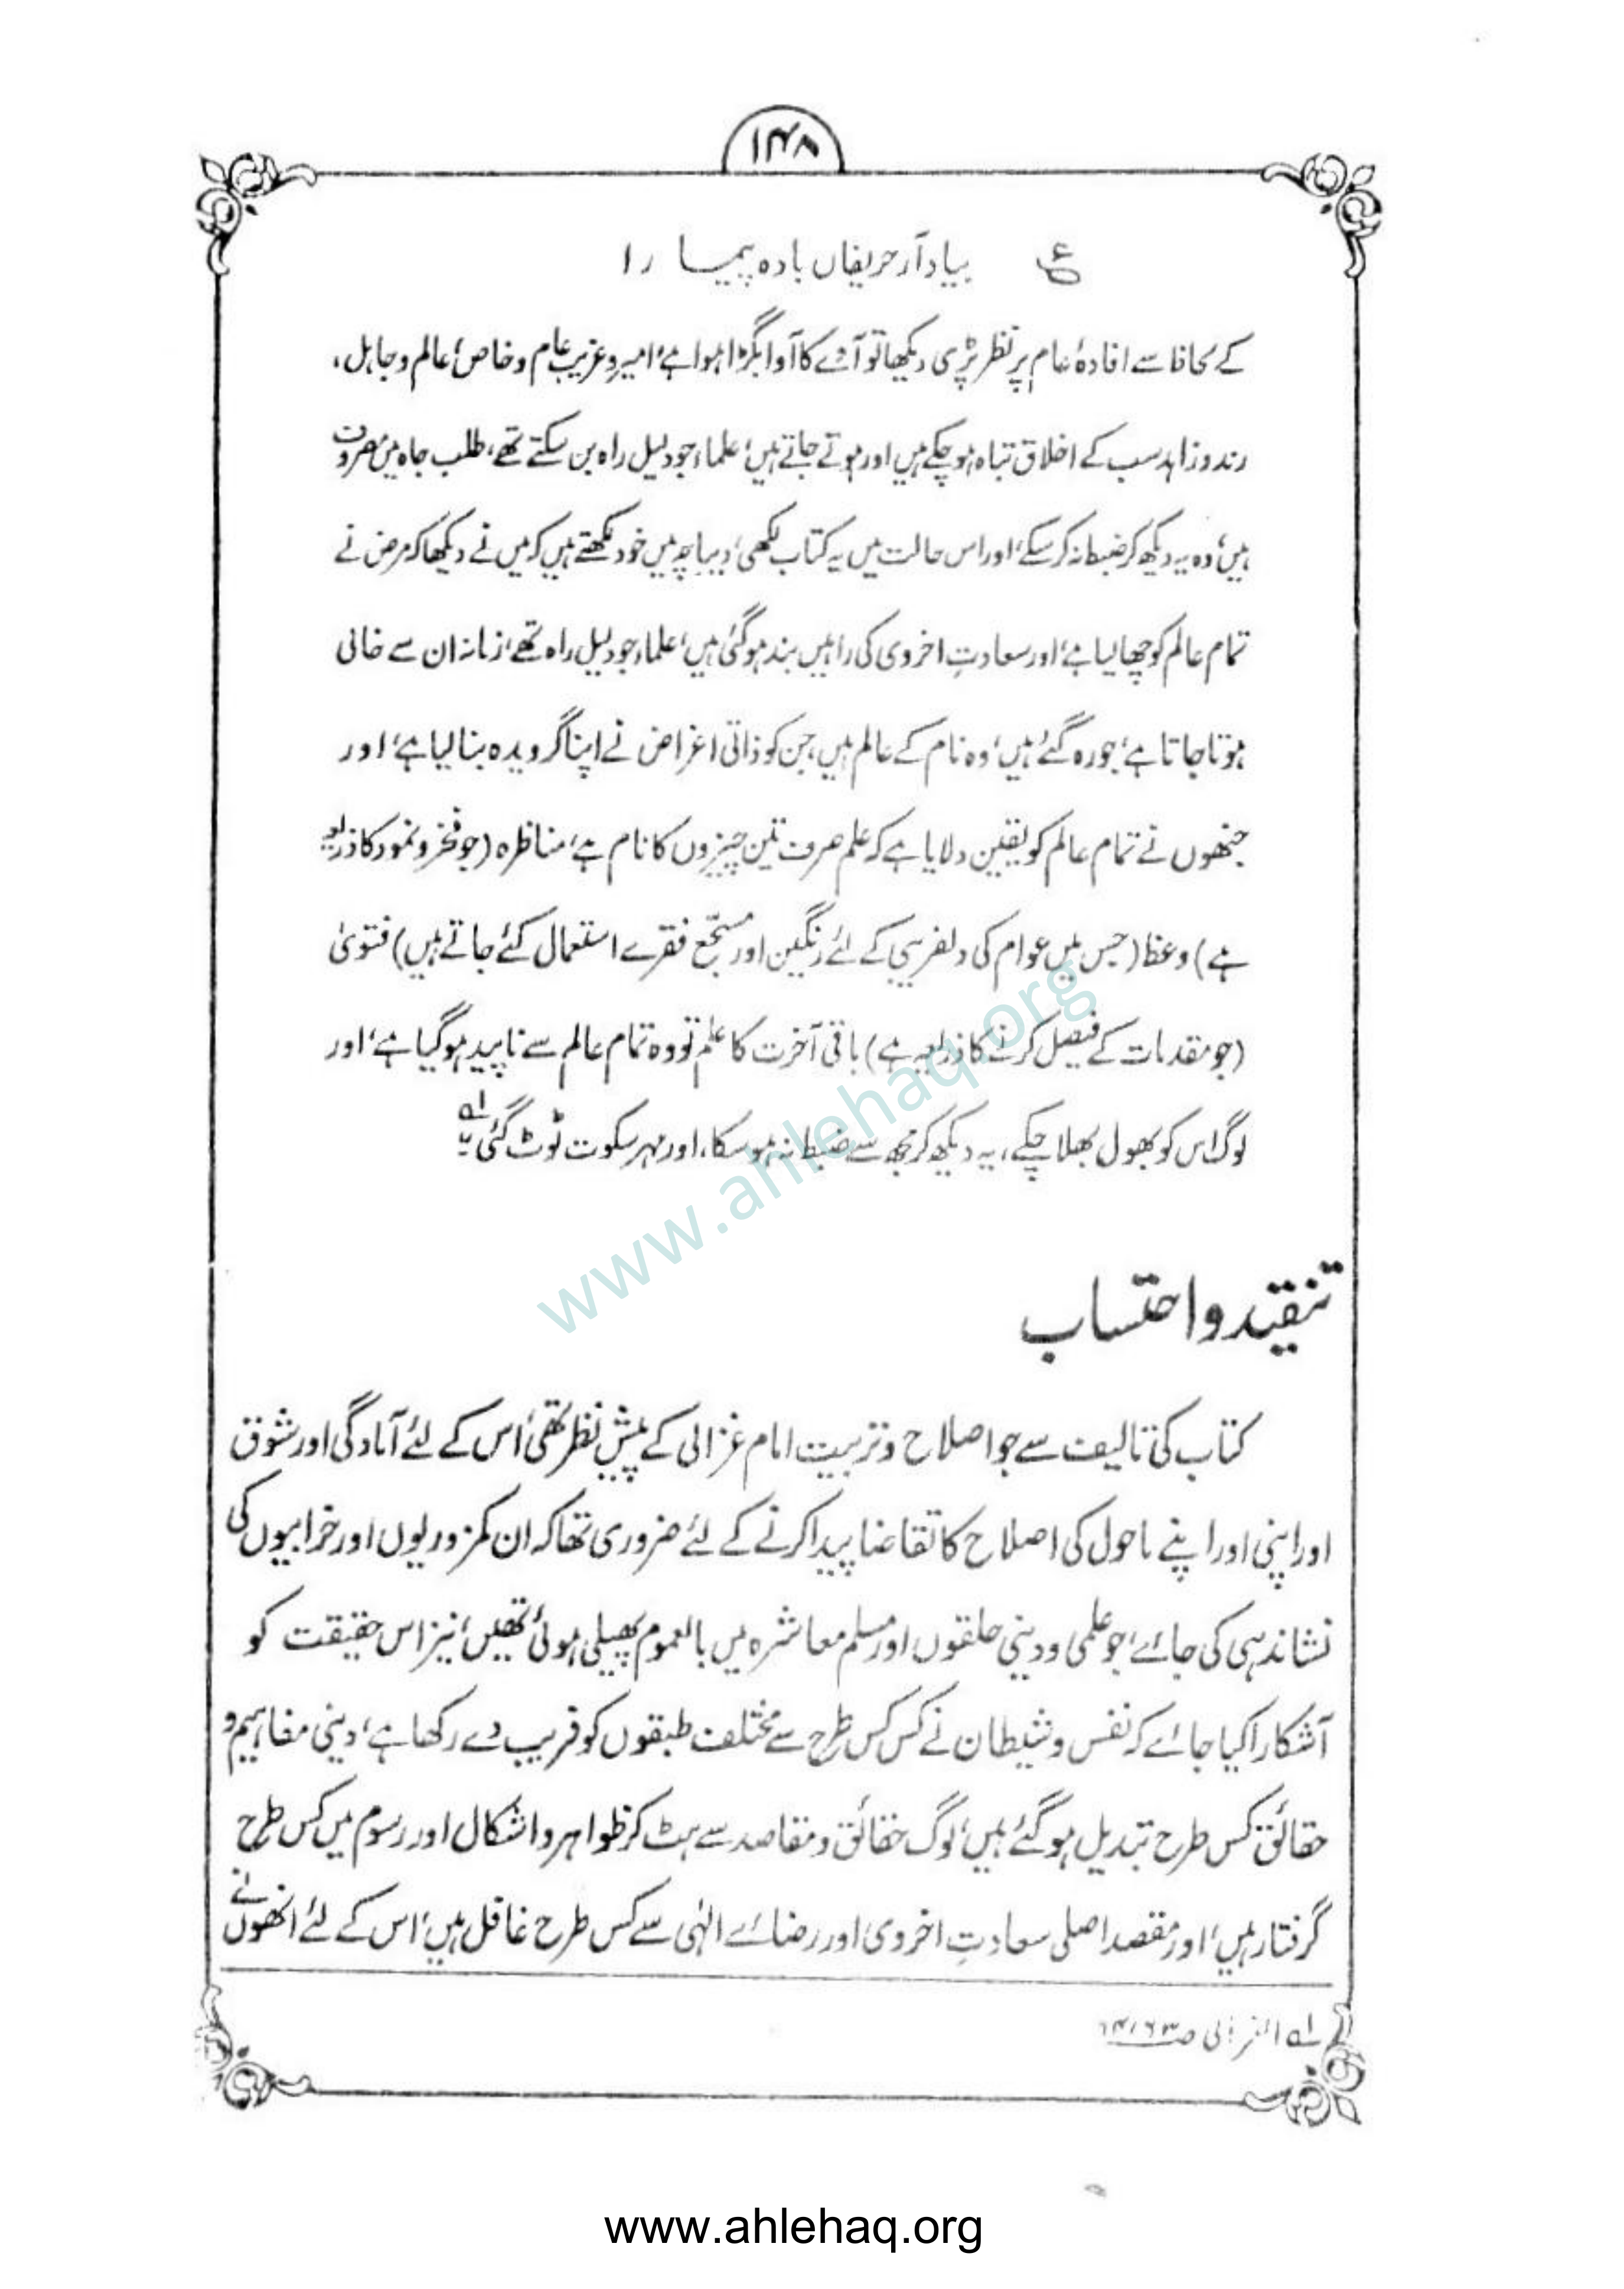 ۱۴۸
ع بیاد آر حریفاں بادہ پیما را
کے لحاظ سے افادۂ عام پر نظر پڑی دیکھا تو آوے کا آوا بگڑا ہوا ہے، امیر و غریب، عام و خاص، عالم و جاہل،
رند و زاہد سب کے اخلاق تباہ ہو چکے ہیں اور ہوتے جاتے ہیں، علماء جو دلیل راہ بن سکتے تھے، طلب جاہ میں مصروف
ہیں، وہ یہ دیکھ کر ضبط نہ کر سکے، اور اس حالت میں یہ کتاب لکھی، دیباچہ میں خود لکھتے ہیں کہ میں نے دیکھا کہ مرض نے
تمام عالم کو چھا لیا ہے، اور سعادتِ اخروی کی راہیں بند ہو گئی ہیں، علماء جو دلیل راہ تھے، زمانہ ان سے خالی
ہوتا جاتا ہے، جو رہ گئے ہیں، وہ نام کے عالم ہیں، جن کو ذاتی اغراض نے اپنا گرویدہ بنا لیا ہے، اور
جنھوں نے تمام عالم کو یقین دلایا ہے کہ علم صرف تین چیزوں کا نام ہے، مناظرہ (جو فخر و نمود کا ذریعہ
ہے) وعظ (جس میں عوام کی دلفریبی کے لئے رنگین اور مسجّع فقرے استعمال کئے جاتے ہیں) فتویٰ
(جو مقدمات کے فیصل کرنے کا ذریعہ ہے) باقی آخرت کا علم تو وہ تمام عالم سے ناپید ہو گیا ہے، اور
لوگ اس کو بھول بھلا چکے، یہ دیکھ کر مجھ سے ضبط نہ ہو سکا، اور مہر سکوت ٹوٹ گئی" لہ
تنقید و احتساب
کتاب کی تالیف سے جو اصلاح و تربیت امام غزالی کے پیش نظر تھی، اس کے لئے آمادگی اور شوق
اور اپنی اور اپنے ماحول کی اصلاح کا تقاضا پیدا کرنے کے لئے ضروری تھا کہ ان کمزوریوں اور خرابیوں کی
نشاندہی کی جائے، جو علمی و دینی حلقوں اور مسلم معاشرہ میں بالعموم پھیلی ہوئی تھیں، نیز اس حقیقت کو
آشکارا کیا جائے کہ نفس و شیطان نے کس کس طرح سے مختلف طبقوں کو فریب دے رکھا ہے، دینی مفاہیم و
حقائق کس طرح تبدیل ہو گئے ہیں، لوگ حقائق و مقاصد سے ہٹ کر ظواہر و اشکال اور رسوم میں کس طرح
گرفتار ہیں، اور مقصد اصلی سعادتِ اخروی، اور رضائے الٰہی سے کس طرح غافل ہیں، اس کے لئے انھوں نے
لہ الغزالی ص
www.ahlehaq.org
www.ahlehaq.org